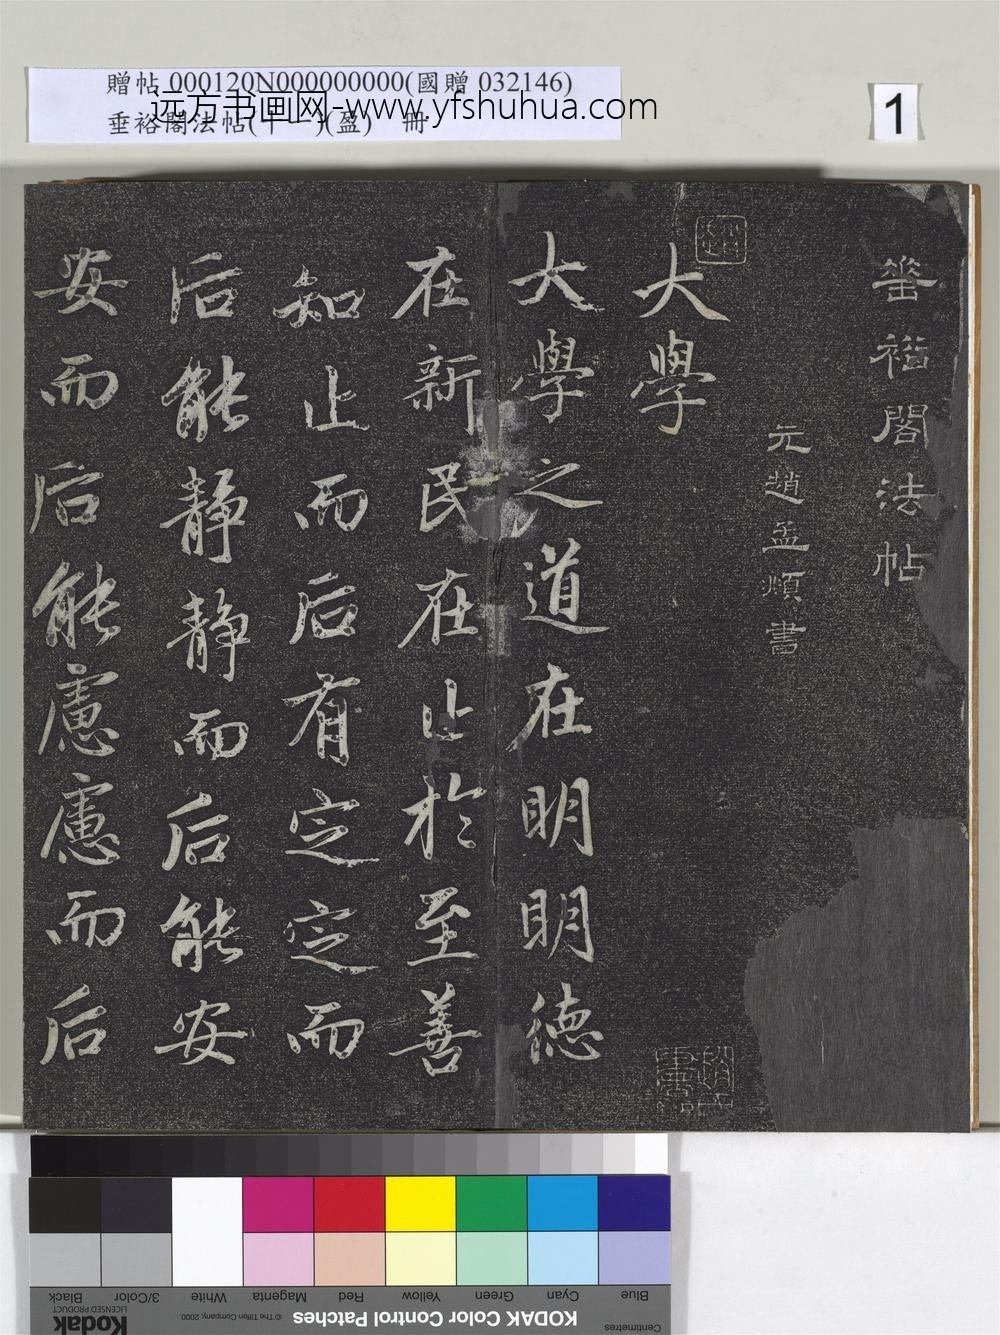 贈帖 000120N000000000(國贈 032146)
垂裕閣法帖(十一)(盈) 冊
远方书画网-www.yfshuhua.com
1
垂裕閣法帖
元趙孟頫書
大學
大學之道在明明德
在新民在止於至善
知止而后有定定而
后能靜靜而后能安
安而后能慮慮而后
Black
3/Color
White
Magenta
Red
Yellow
Green
Cyan
Blue
Kodak
LICENSED PRODUCT
© The Tiffen Company, 2000
KODAK Color Control Patches
Centimetres